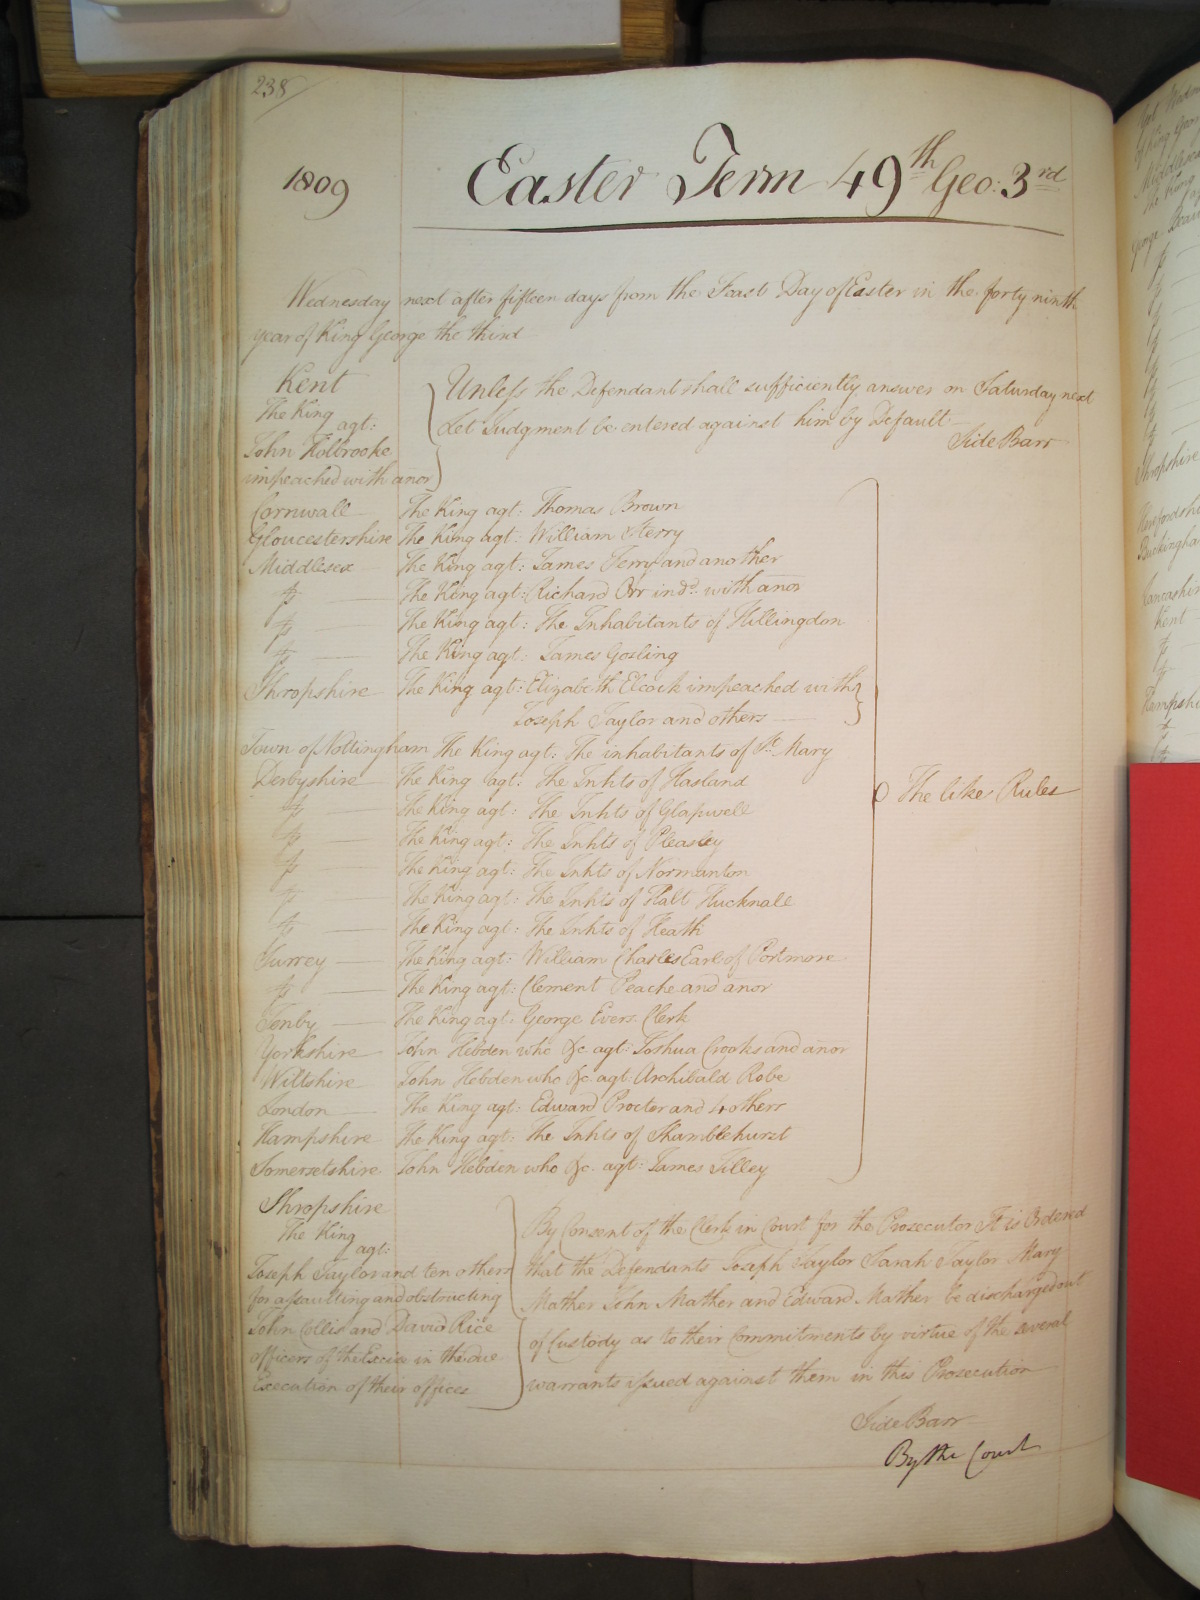 238
1809
Easter Term 49th Geo: 3rd
Wednesday next after fifteen days from the Feast Day of Easter in the forty ninth
year of King George the third
Kent
The King
agt:
John Holbrooke
impeached with anor
Unless the Defendant shall sufficiently answer on Saturday next
Let Judgment be entered against him by Default
Side Barr
Cornwall The King agt: Thomas Brown
Gloucestershire The King agt: William Sterry
Middlesex The King agt: James Terry and another
The King agt: Richard Orr indd. with anor
The King agt: The Inhabitants of Hillingdon
The King agt: James Gosling
Shropshire The King agt: Elizabeth Elcock impeached with
Joseph Taylor and others
Town of Nottingham The King agt: The inhabitants of St. Mary
Derbyshire The King agt: The Inhts of Hasland
The King agt: The Inhts of Glapwell
The King agt: The Inhts of Pleasley
The King agt: The Inhts of Normanton
The King agt: The Inhts of Halt Hucknall
The King agt: The Inhts of Heath
Surrey The King agt: William Charles Earl of Portmore
The King agt: Clement Peache and anor
Tenby The King agt: George Evers Clerk
Yorkshire John Hebden who &c. agt: Joshua Crooks and anor
Wiltshire John Hebden who &c. agt: Archibald Robe
London The King agt: Edward Procter and 4 others
Hampshire The King agt: The Inhts of Shamblehurst
Somersetshire John Hebden who &c. agt: James Tilley
The like Rules
Shropshire
The King
agt:
Joseph Taylor and ten others
for assaulting and obstructing
John Collis and David Rice
officers of the Excise in the due
Execution of their offices
By Consent of the Clerk in Court for the Prosecutor It is Ordered
that the Defendants Joseph Taylor Sarah Taylor Mary
Mather John Mather and Edward Mather be discharged out
of Custody as to their Commitments by virtue of the several
warrants issued against them in this Prosecution
Side Barr
By the Court
Shropshire
Kent